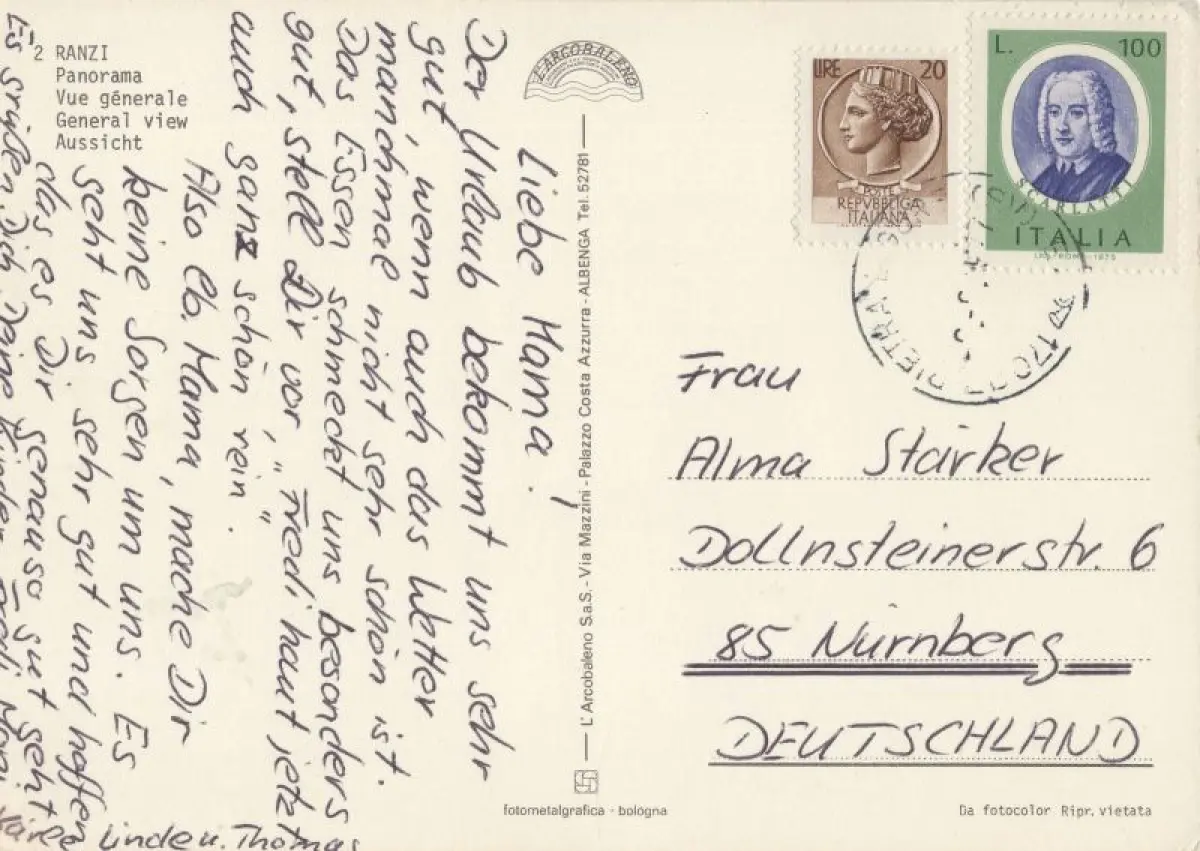 2 RANZI
Panorama
Vue génerale
General view
Aussicht
Liebe Mama!
Der Urlaub bekommt uns sehr
gut, wenn auch das Wetter
manchmal nicht sehr schön ist.
Das Essen schmeckt uns besonders
gut, stell Dir vor, "Fredi" haut jetzt
auch ganz schön rein.
Also lb. Mama, mache Dir
keine Sorgen um uns. Es
seht uns sehr gut und hoffen
das es Dir genauso gut geht
Es grüßen Dich Deine Kinder Fredi
Linde u. Thomas
L'ARCOBALENO
L'Arcobaleno S.a.S. - Via Mazzini - Palazzo Costa Azzurra - ALBENGA Tel. 52781
fotometalgrafica - bologna
LIRE 20
POSTE
REPVBBLICA
ITALIANA
L. 100
SCARLATTI
ITALIA
1975
PIETRA
(SV)
Frau
Alma Stärker
Dollnsteinerstr. 6
85 Nürnberg
DEUTSCHLAND
Da fotocolor Ripr. vietata